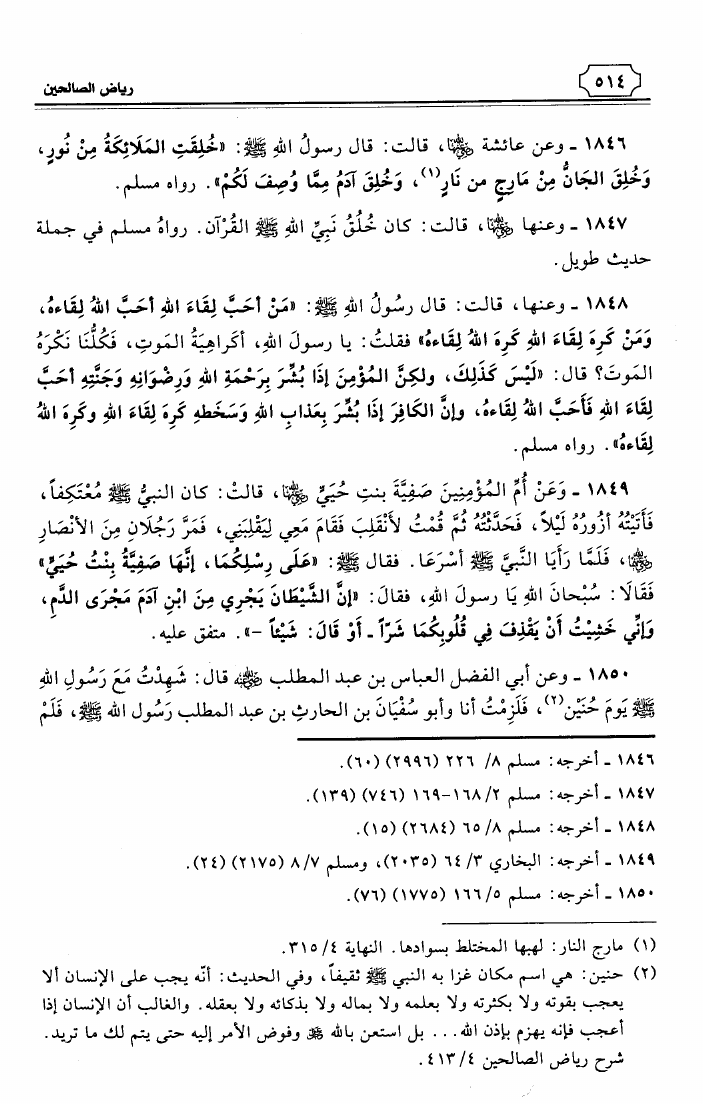 ٥١٤
رياض الصالحين
١٨٤٦ ـ وعن عائشة رضي الله عنها، قالت: قال رسولُ اللهِ ﷺ: «خُلِقَتِ المَلَائِكَةُ مِنْ نُورٍ،
وَخُلِقَ الجَانُّ مِنْ مَارِجٍ من نَارٍ(١)، وَخُلِقَ آدَمُ مِمَّا وُصِفَ لَكُمْ». رواه مسلم.
١٨٤٧ ـ وعنها رضي الله عنها، قالت: كان خُلُقُ نَبِيِّ اللهِ ﷺ القُرْآن. رواهُ مسلم في جملة
حديث طويل.
١٨٤٨ ـ وعنها، قالت: قال رسُولُ اللهِ ﷺ: «مَنْ أحَبَّ لِقَاءَ اللهِ أحَبَّ اللهُ لِقَاءهُ،
وَمَنْ كَرِهَ لِقَاءَ اللهِ كَرِهَ اللهُ لِقَاءهُ» فقلتُ: يا رسولَ اللهِ، أكَراهِيَةُ المَوتِ، فَكُلُّنَا نَكْرَهُ
المَوتَ؟ قال: «لَيْسَ كَذَلِكَ، ولكِنَّ المُؤْمِنَ إذَا بُشِّرَ بِرَحْمَةِ اللهِ وَرِضْوَانِهِ وَجَنَّتِهِ أحَبَّ
لِقَاءَ اللهِ فَأَحَبَّ اللهُ لِقَاءهُ، وإنَّ الكَافِرَ إذَا بُشِّرَ بِعَذابِ اللهِ وَسَخَطِهِ كَرِهَ لِقَاءَ اللهِ وكَرِهَ اللهُ
لِقَاءهُ». رواه مسلم.
١٨٤٩ ـ وَعَنْ أُمِّ المُؤْمِنِينَ صَفِيَّةَ بنتِ حُيَيٍّ رضي الله عنها، قالتْ: كان النبيُّ ﷺ مُعْتَكِفاً،
فَأَتَيْتُهُ أزُورُهُ لَيْلاً، فَحَدَّثْتُهُ ثُمَّ قُمْتُ لأَنْقَلِبَ فَقَامَ مَعِي لِيَقْلِبَنِي، فَمَرَّ رَجُلَانِ مِنَ الأنْصَارِ
رضي الله عنهما، فَلَمَّا رَأَيَا النَّبيَّ ﷺ أسْرَعَا. فقال ﷺ: «عَلَى رِسْلِكُمَا، إنَّهَا صَفِيَّةُ بِنْتُ حُيَيٍّ»
فَقَالَا: سُبْحانَ اللهِ يَا رسولَ اللهِ، فقالَ: «إنَّ الشَّيْطَانَ يَجْرِي مِنَ ابْنِ آدَمَ مَجْرَى الدَّمِ،
وَإنِّي خَشِيْتُ أنْ يَقْذِفَ فِي قُلُوبِكُمَا شَرّاً ـ أوْ قَالَ: شَيْئاً -». متفق عليه.
١٨٥٠ ـ وعن أبي الفضل العباس بن عبد المطلب رضي الله عنه قال: شَهِدْتُ مَعَ رَسُولِ اللهِ
ﷺ يَومَ حُنَيْن(٢)، فَلَزِمْتُ أنا وأبو سُفْيَانَ بن الحارثِ بن عبد المطلب رَسُول الله ﷺ، فَلَمْ
١٨٤٦ ـ أخرجه: مسلم ٨/ ٢٢٦ (٢٩٩٦) (٦٠).
١٨٤٧ ـ أخرجه: مسلم ٢/ ١٦٨-١٦٩ (٧٤٦) (١٣٩).
١٨٤٨ ـ أخرجه: مسلم ٨/ ٦٥ (٢٦٨٤) (١٥).
١٨٤٩ ـ أخرجه: البخاري ٣/ ٦٤ (٢٠٣٥)، ومسلم ٧/ ٨ (٢١٧٥) (٢٤).
١٨٥٠ ـ أخرجه: مسلم ٥/ ١٦٦ (١٧٧٥) (٧٦).
(١) مارج النار: لهبها المختلط بسوادها. النهاية ٤/ ٣١٥.
(٢) حنين: هي اسم مكان غزا به النبي ﷺ ثقيفاً، وفي الحديث: أنّه يجب على الإنسان ألا
يعجب بقوته ولا بكثرته ولا بعلمه ولا بماله ولا بذكائه ولا بعقله. والغالب أن الإنسان إذا
أعجب فإنه يهزم بإذن الله... بل استعن بالله ﷻ وفوض الأمر إليه حتى يتم لك ما تريد.
شرح رياض الصالحين ٤/ ٤١٣.